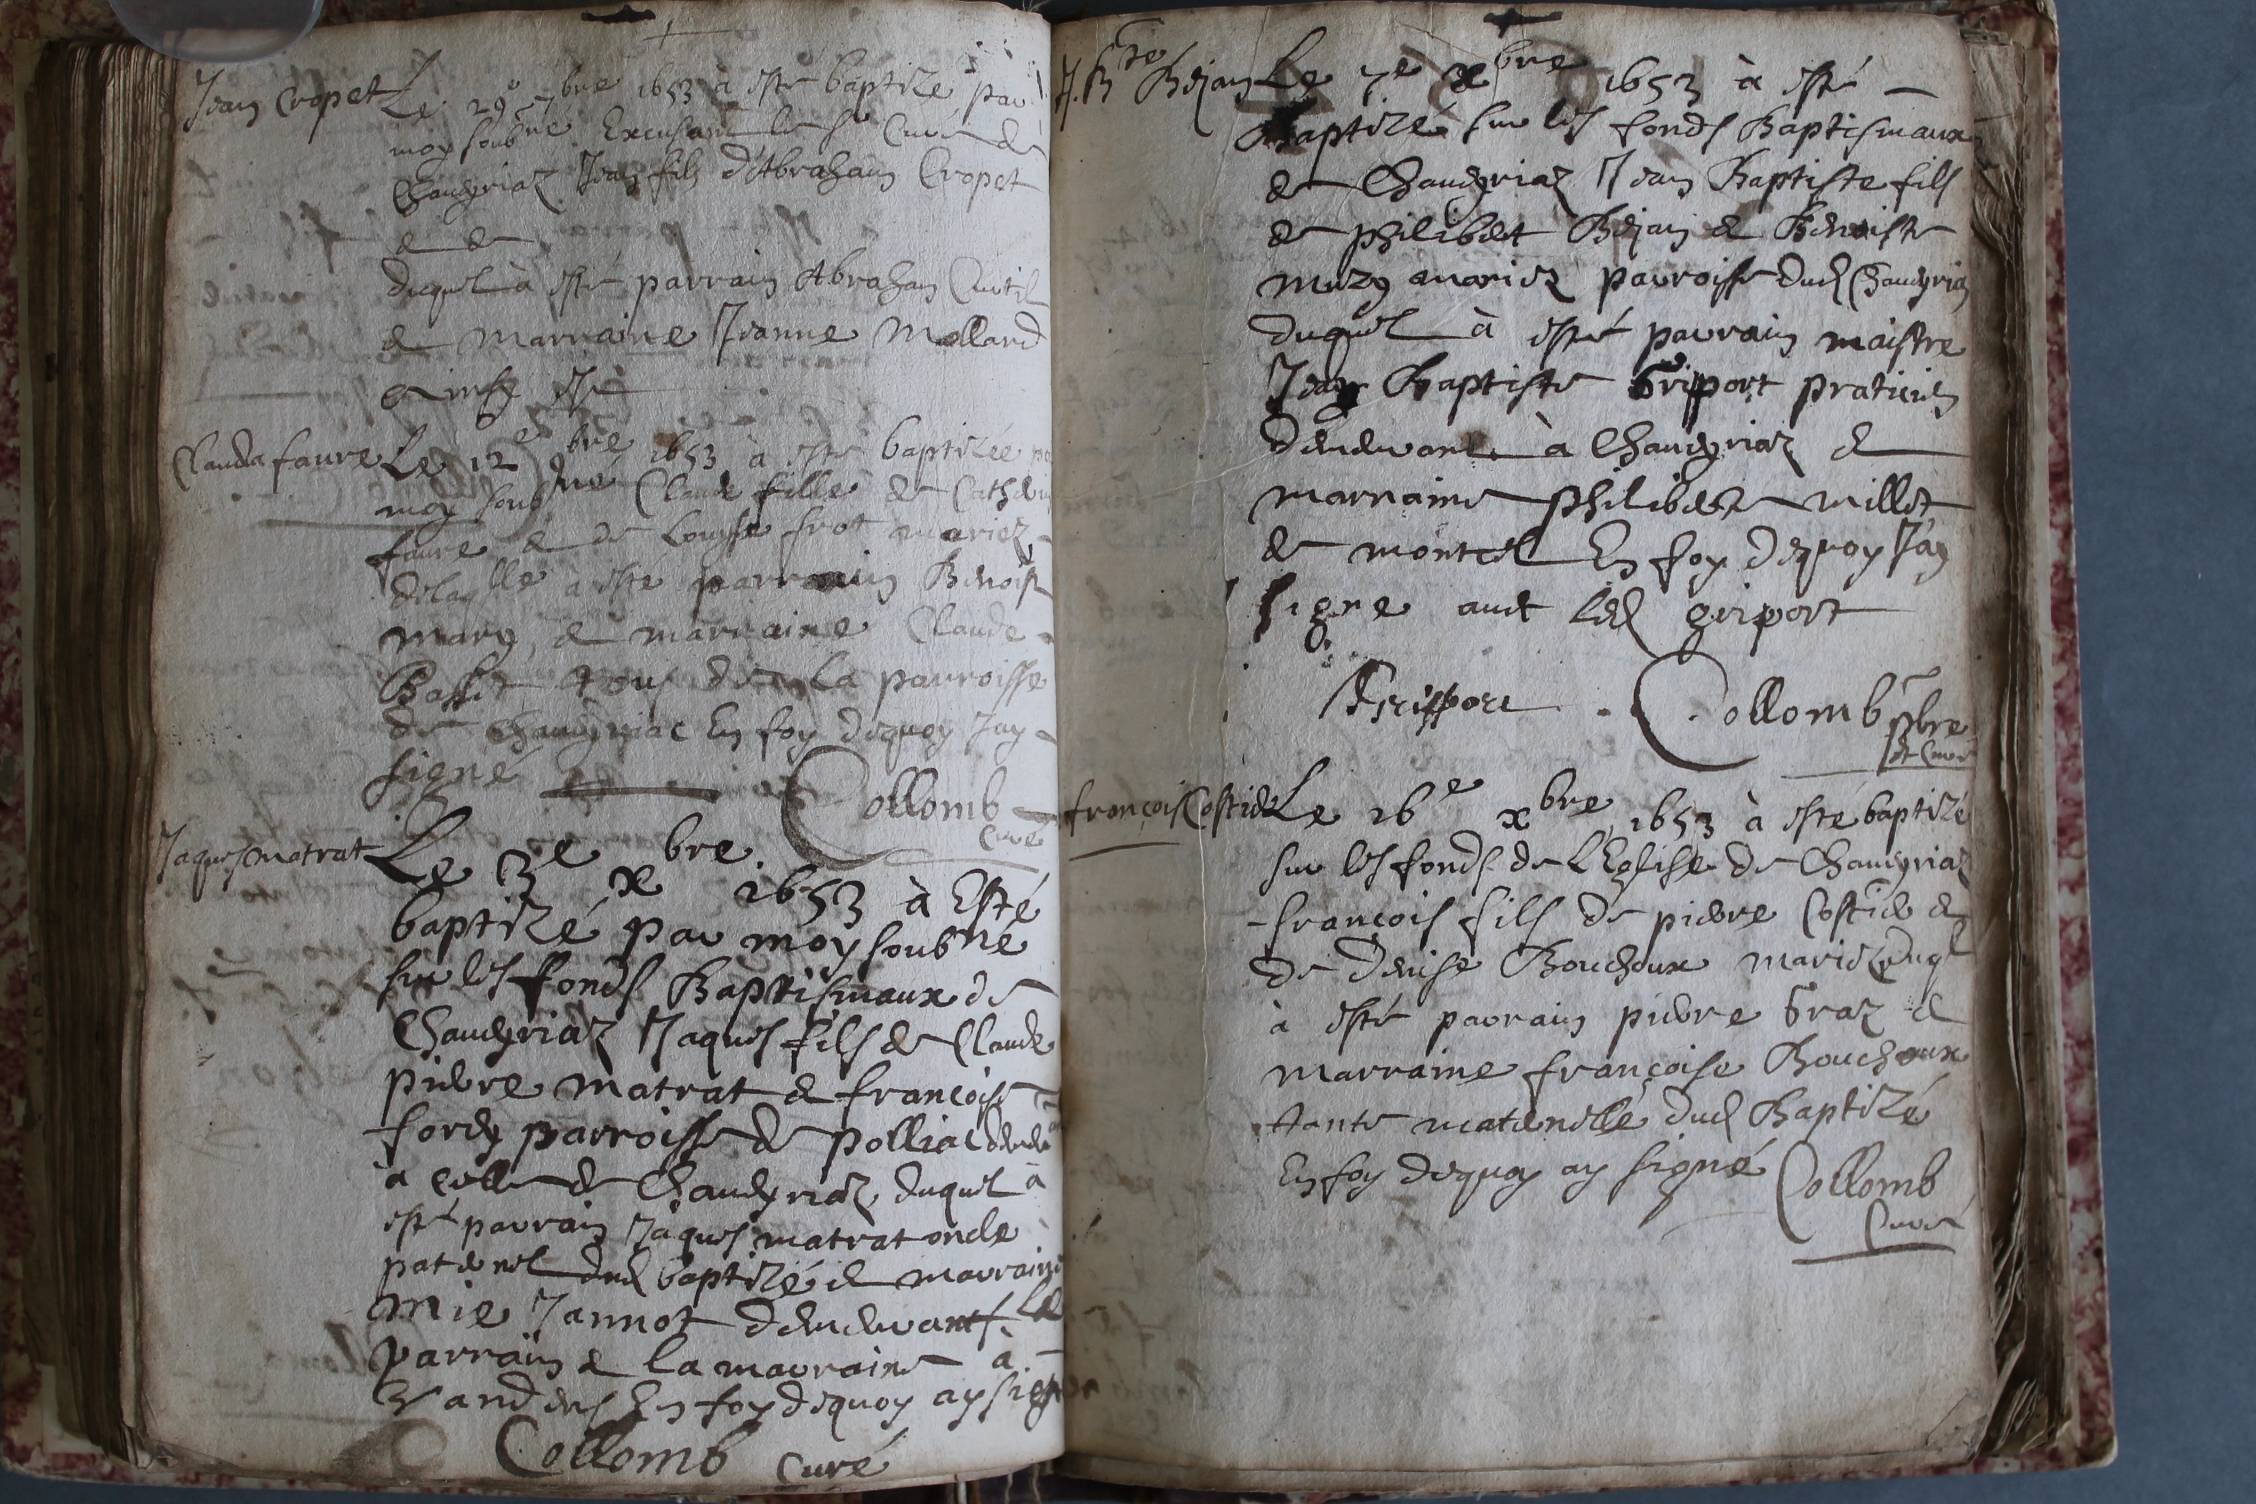 Jean Cropet Le 29e 7bre 1653 à esté baptizé par
moy soubné Excusant le sr Curé de
Chaveyriaz Jean fils d'Abraham Cropet
& de
duquel à esté parrain Abraham Curtil
& marraine Jeanne Mollard
ainsy est
Clauda faure Le 12e bre 1653 à esté baptizée
moy soubné Claude fille de
faure & de Louyse frot mariez
delaqlle à esté parrain Benoist
mary, & marraine Claude
Basset tous de la parroisse
de Chaveyriac En foy dequoy Jay
signé Collomb
Curé
Jaques matrat Le 3e xbre 1653 à Esté
baptizé par moy soubné
sur les fonds Baptismaux de
Chaveyriaz Jaques fils de Claude
pierre matrat & francoise
forey parroisse de polliac
à celle de Chaveyriaz, duquel à
esté parrain Jaques matrat oncle
paternel dud baptizé & marraine
mie Jannot demeurants le
parrain & la marraine à
Vandens En foy dequoy ay signé
Collomb Curé
J. Bte Bejan Le 7e xbre 1653 à esté
Baptizé sur les fonds Baptismaux
de Chaveyriaz Jean Baptiste fils
de philibert Bejan & Benoiste
muzy mariez parroisse dud Chaveyriaz
duquel à esté parrain maistre
Jean Baptiste Griport praticien
demeurant à Chaveyriaz &
marraine philiberte millet
de montcel En foy dequoy Jay
signe avec led griport
Griport Collomb pbre
et Curé
françois Costier Le 16e xbre 1653 à esté baptizé
sur les fonds de L'Eglise de Chaveyriaz
françois fils de pierre Costier &
de Denise Bouchoux mariez duql
à esté parrain pierre Graz &
marraine françoise Bouchoux
tante maternelle dud Baptizé
En foy dequoy ay signé Collomb
Curé